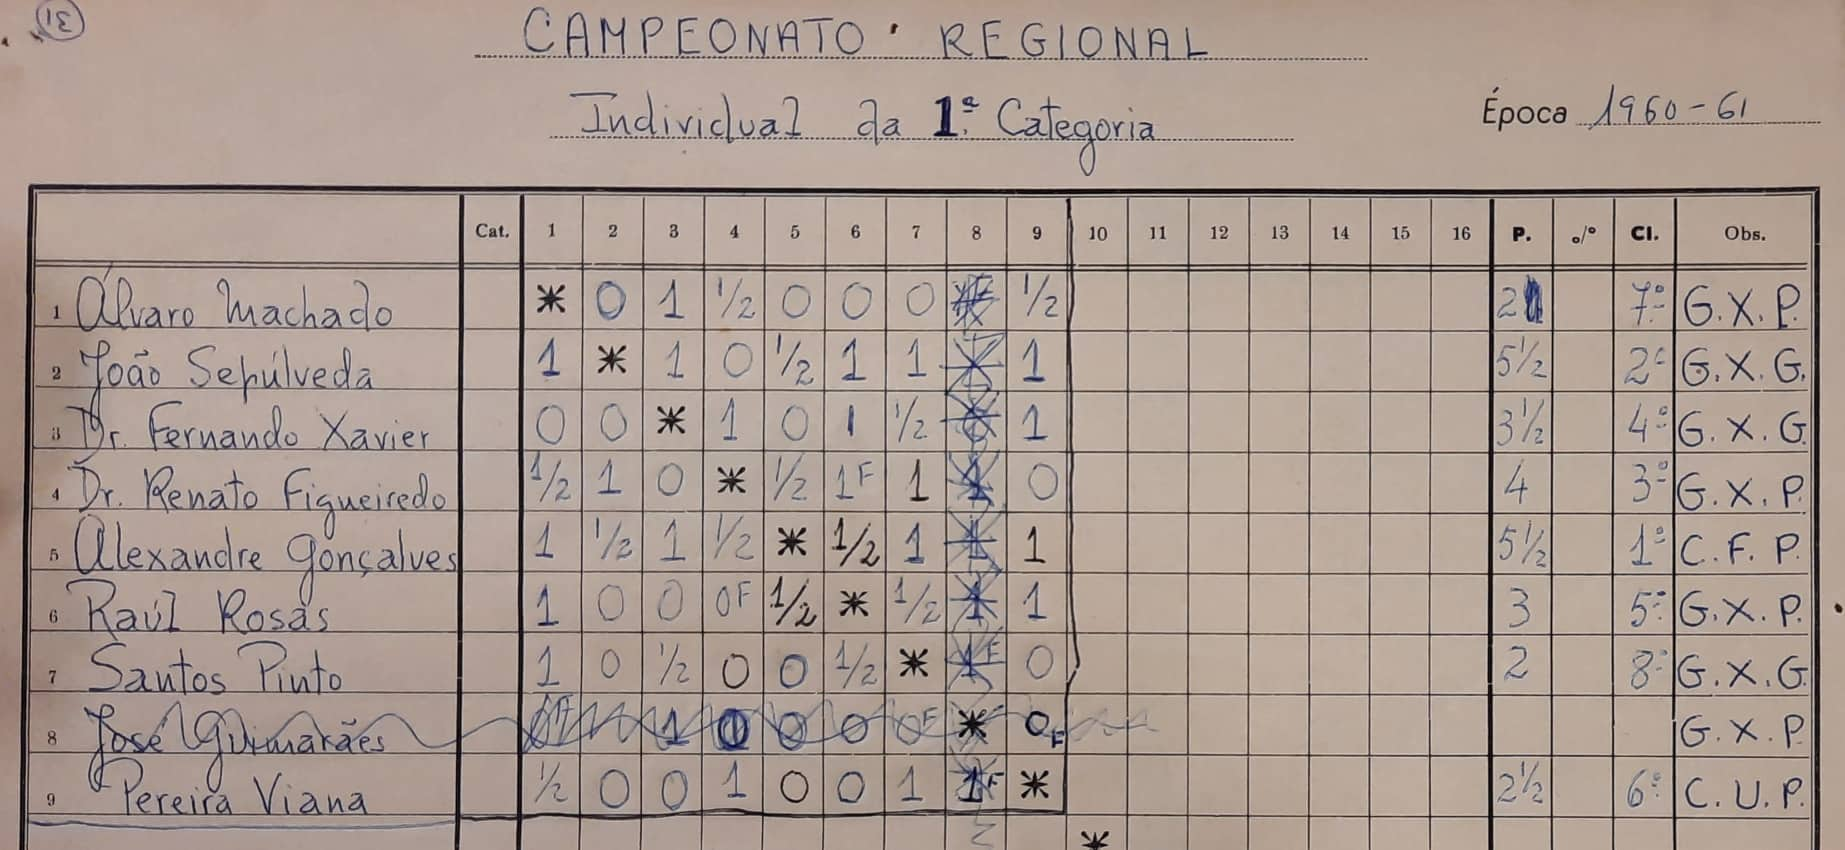 31
CAMPEONATO REGIONAL
Individual da 1ª Categoria
Época 1960-61
Cat. 1 2 3 4 5 6 7 8 9 10 11 12 13 14 15 16 P. o/o Cl. Obs.
1 Álvaro Machado * 0 1 ½ 0 0 0 ½ 2 7º G.X.P.
2 João Sepúlveda 1 * 1 0 ½ 1 1 1 5½ 2º G.X.G.
3 Dr. Fernando Xavier 0 0 * 1 0 1 ½ 1 3½ 4º G.X.G.
4 Dr. Renato Figueiredo ½ 1 0 * ½ 1F 1 1 0 4 3º G.X.P.
5 Alexandre Gonçalves 1 ½ 1 ½ * ½ 1 1 1 5½ 1º C.F.P.
6 Raúl Rosas 1 0 0 0F ½ * ½ 1 1 3 5º G.X.P.
7 Santos Pinto 1 0 ½ 0 0 ½ * 1F 0 2 8º G.X.G.
8 José Guimarães 1 0 0 0 0F * 0F G.X.P.
9 Pereira Viana ½ 0 0 1 0 0 1 1F * 2½ 6º C.U.P.
*